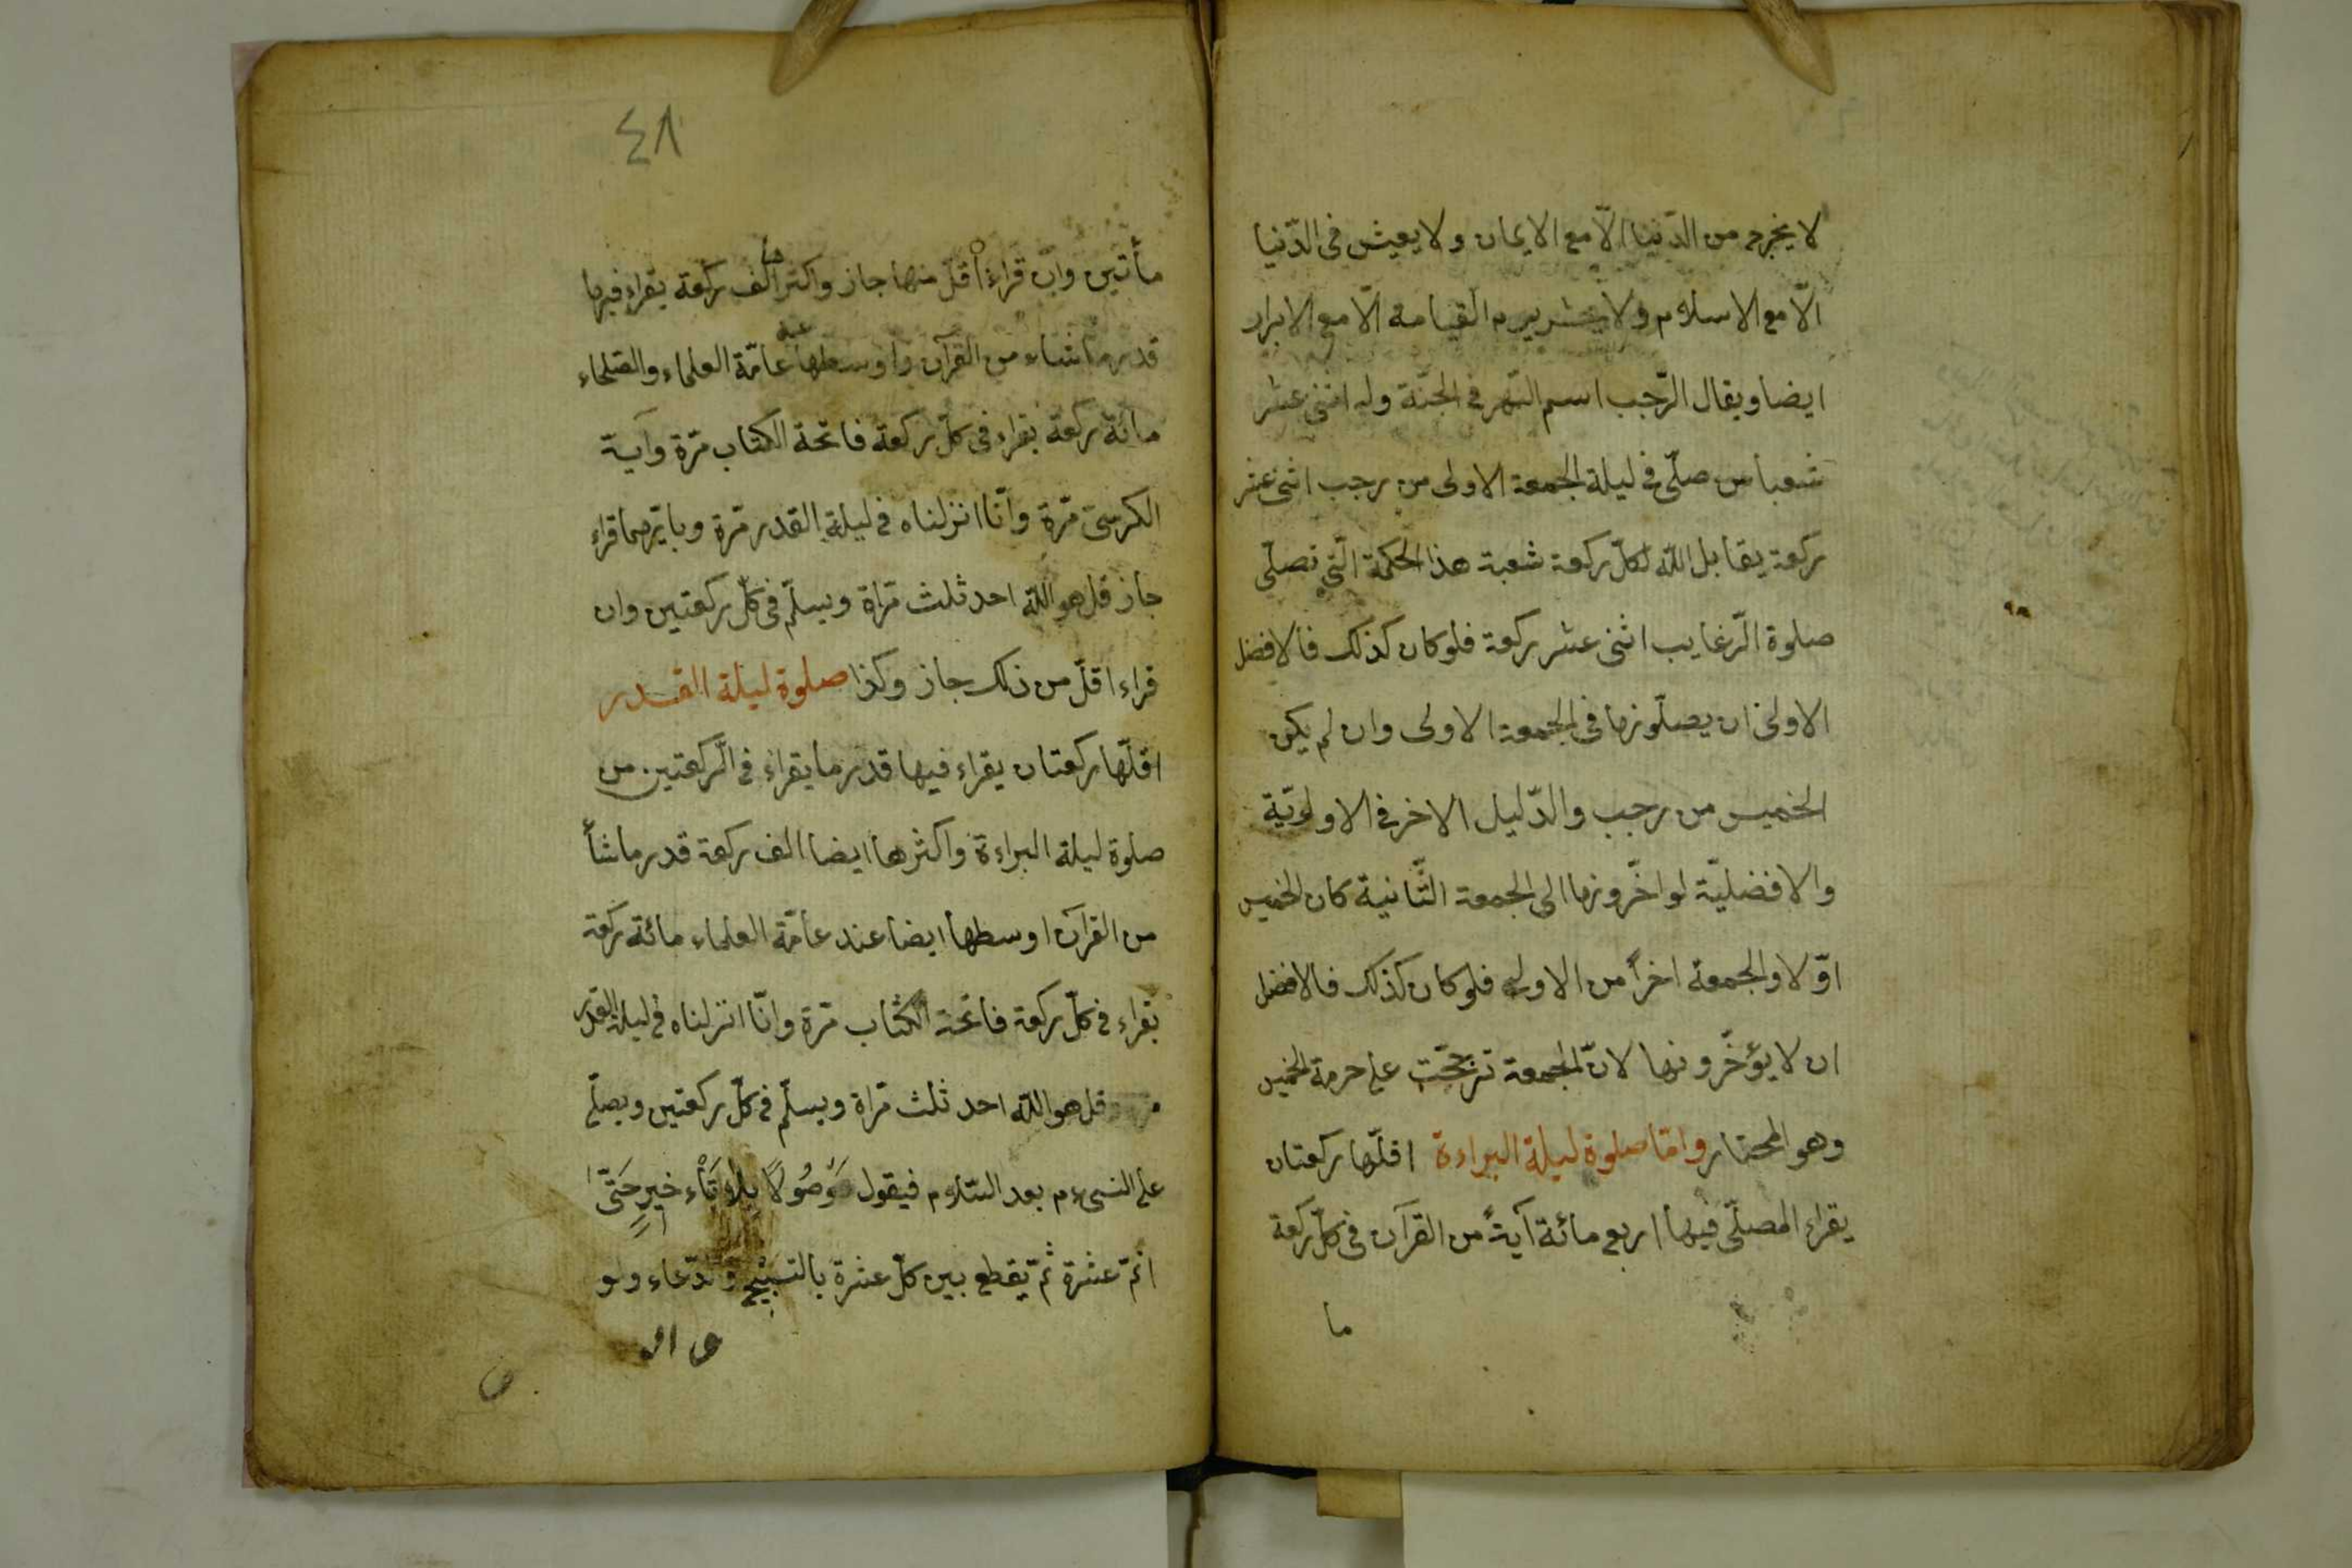 لا يخرج من الدّنيا الّا مع الايمان ولا يعيش فى الدّنيا
الّا مع الاسلام ولا يحشر يوم القيامة الّا مع الابرار
ايضا ويقال الرّجب اسم النّهر فى الجنّة وله اثنى عشر
شعبا من صلّى فى ليلة الجمعة الاولى من رجب اثنى عشر
ركعة يقابل اللّه لكلّ ركعة شعبة هذا الحكمة الّتى تصلّى
صلوة الرّغايب اثنى عشر ركعة فلو كان كذلك فالافضل
الاولى ان يصلّونها فى الجمعة الاولى وان لم يكن
الخميس من رجب والدّليل الاخر فى الاولويّة
والافضليّة لو اخّرونها الى الجمعة الثّانية كان الخميس
اوّلا والجمعة اخراً من الاولى فلو كان كذلك فالافضل
ان لا يؤخّرونها لانّ الجمعة ترجّحت على حرمة الخميس
وهو المختار وامّا صلوة ليلة البراءة اقلّها ركعتان
يقراء المصلّى فيها اربع مائة آية من القرآن فى كلّ ركعة
ما
٤٨
مأتين وان قراء اقلّ منها جاز واكثرها الف ركعة يقراء فيها
قدر ما شاء من القرآن واوسطها عند عامّة العلماء والصّلحاء
مائة ركعة يقراء فى كلّ ركعة فاتحة الكتاب مرّة وآية
الكرسىّ مرّة وانّا انزلناه فى ليلة القدر مرّة وبايّهما قراء
جاز قل هو اللّه احد ثلث مرّاة ويسلّم فى كلّ ركعتين وان
قراء اقلّ من ذلك جاز وكذا صلوة ليلة القدر
اقلّها ركعتان يقراء فيها قدر ما يقراء فى الرّكعتين من
صلوة ليلة البراءة واكثرها ايضا الف ركعة قدر ما شأ
من القرآن اوسطها ايضا عند عامّة العلماء مائة ركعة
يقراء فى كلّ ركعة فاتحة الكتاب مرّة وانّا انزلناه فى ليلة القدر
قل هو اللّه احد ثلث مرّاة ويسلّم فى كلّ ركعتين ويصلّى
على النبىّ م بعد السّلام فيقول مَوصُولًا بِلَا تَأخيرٍ حَتّى
اتمّ عشرة ثمّ يقطع بين كلّ عشرة بالتسبيح والدّعاء ولو